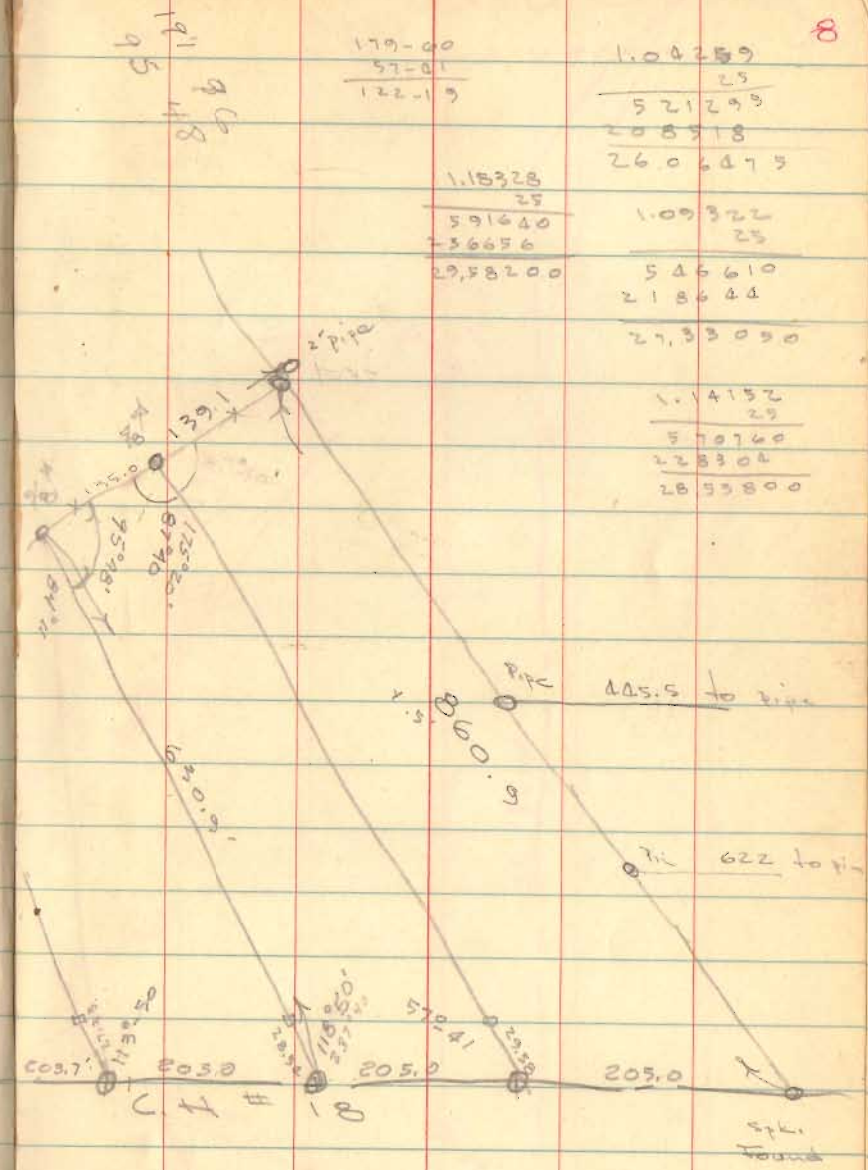 8
191
95
96
48
179-60
57-41
122-19
1.04259
25
521295
208518
26.06475
1.18328
25
591640
236656
29,58200
1.09322
25
546610
218644
27,33050
1.14152
25
570760
228304
2853800
2" pipe
139.1
135.0
95°48'
87°40
125°20'
Pipe
445.5 to pipe
860.9
630.9'
Pin 622 to pin
113°-50
118°50'
237°40
28.54
57°-41
29.58
203.7'
203.0
205.0
205.0
C. H # 18
Spk.
Found